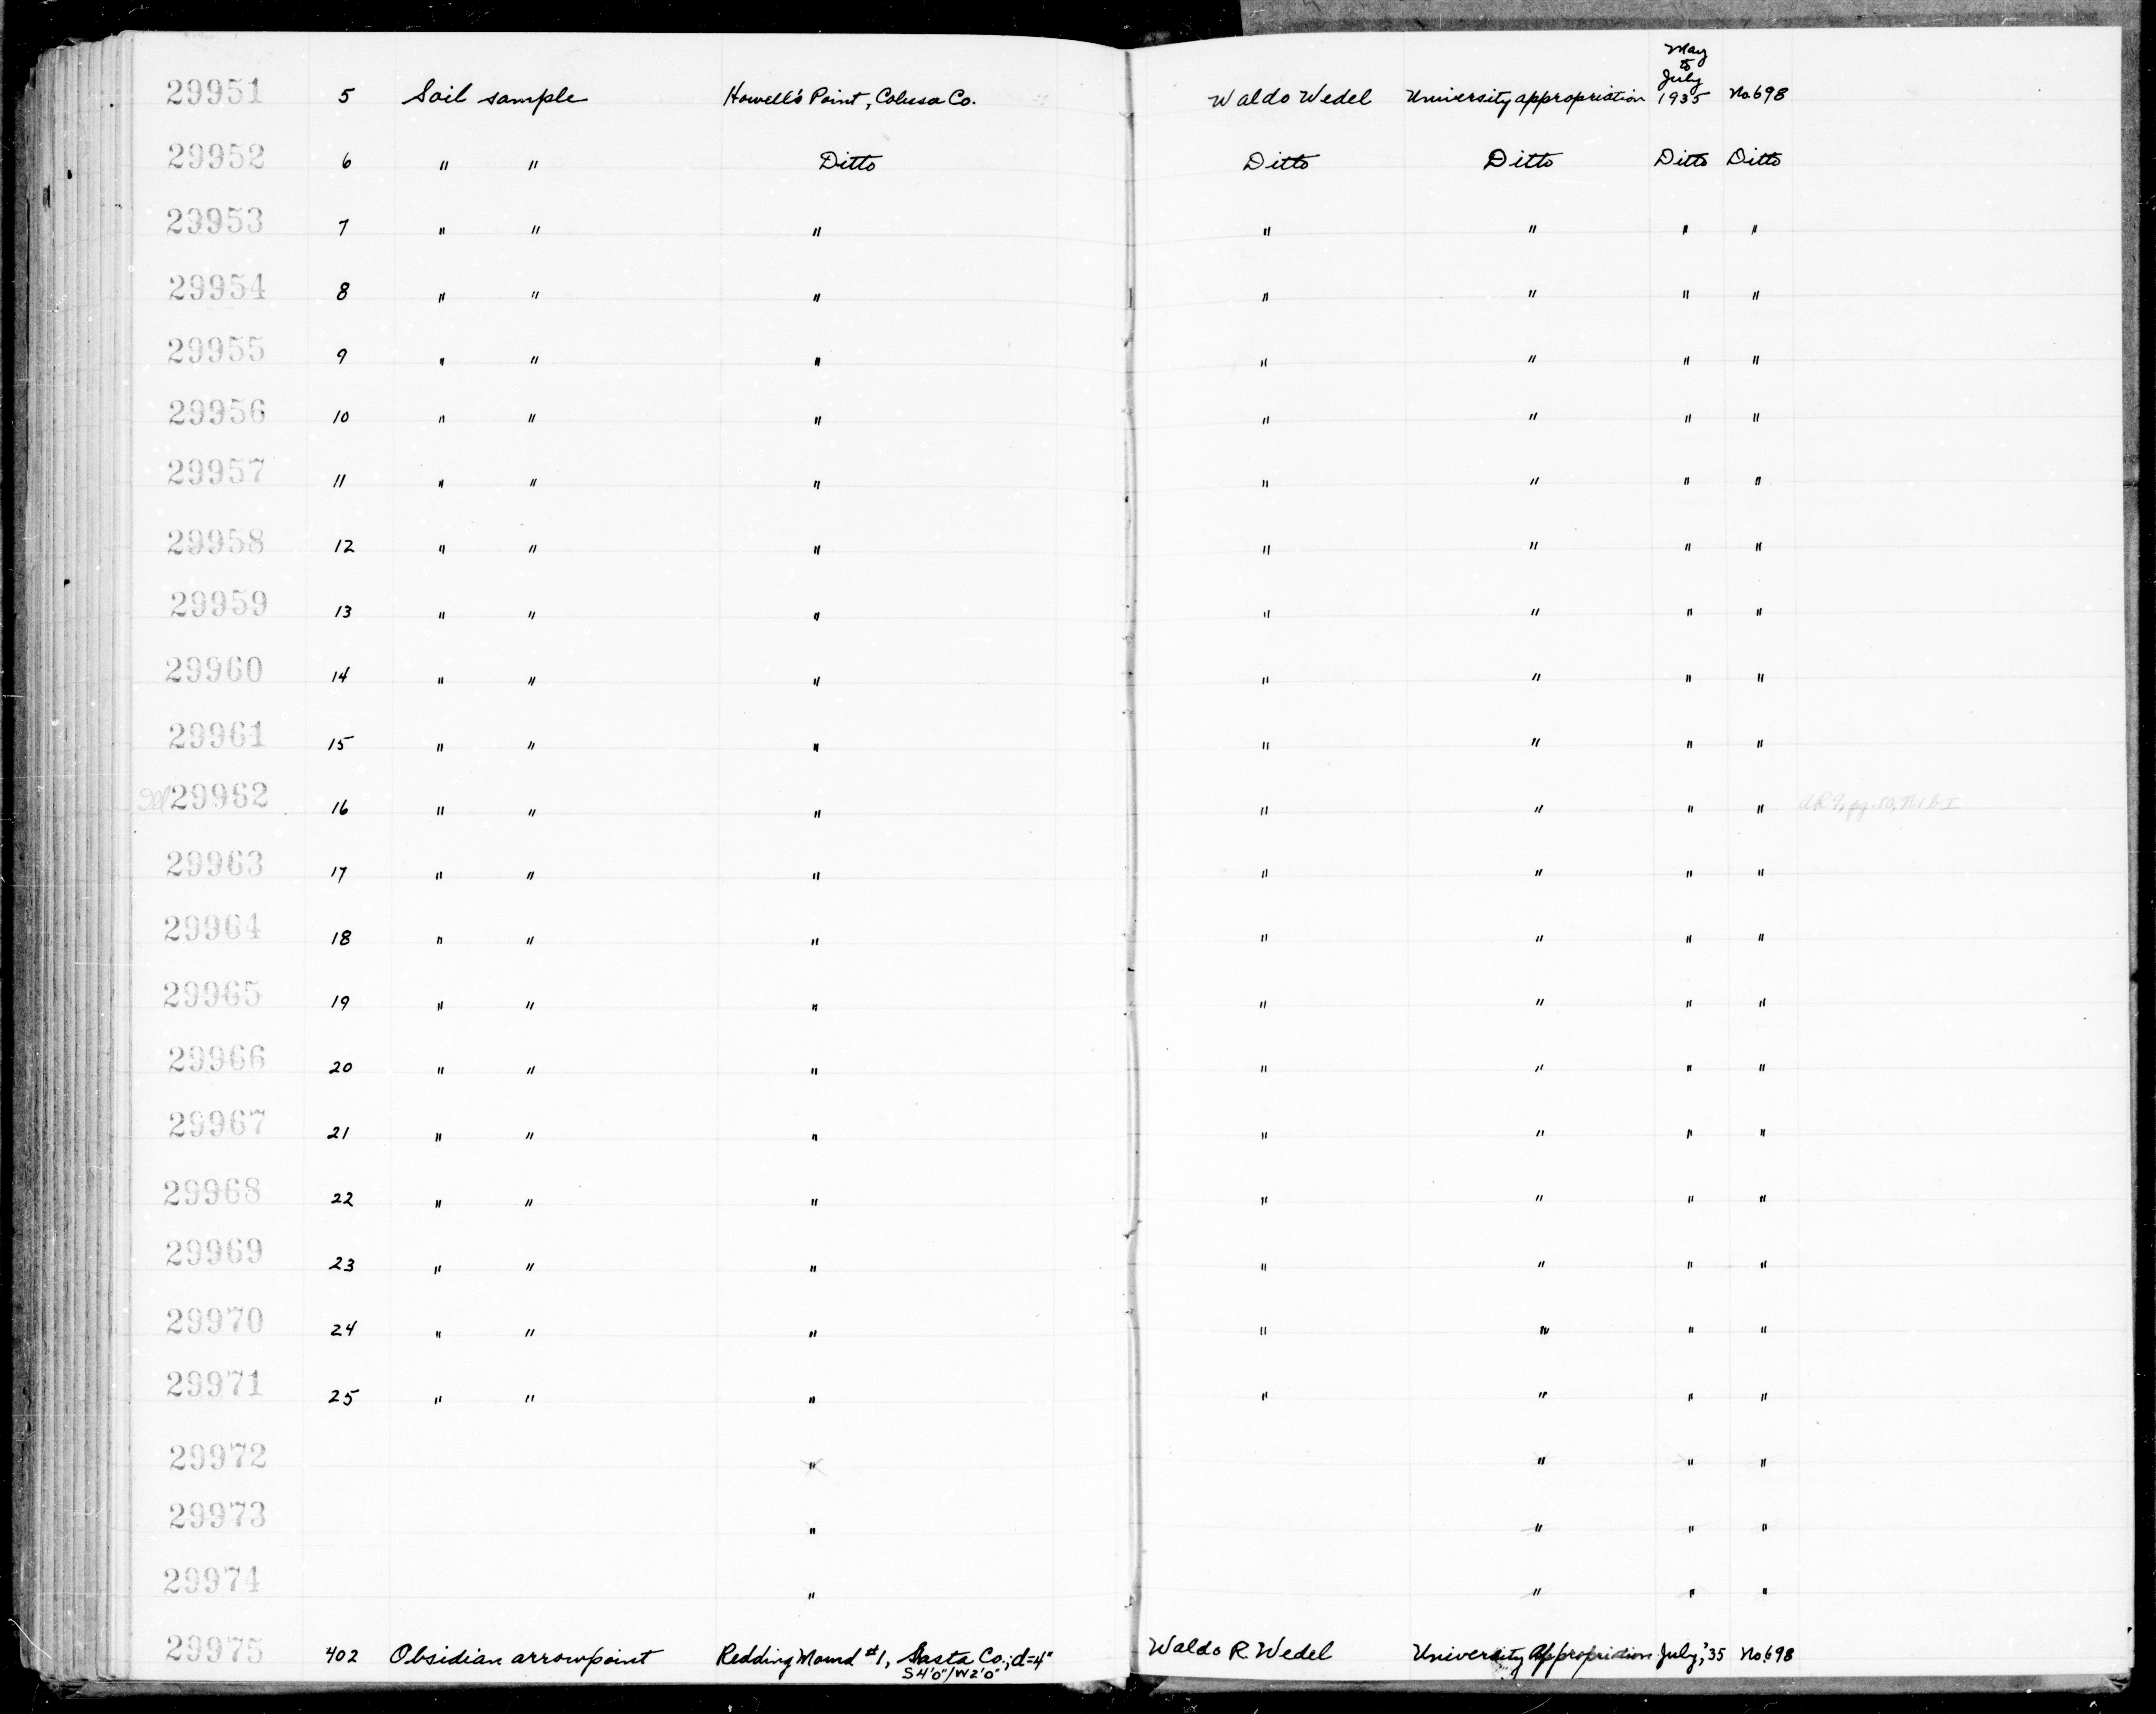 29951 5 Soil sample Howell's Point, Colusa Co. Waldo Wedel University appropriation May to July 1935 No. 698
29952 6 " " Ditto Ditto Ditto Ditto Ditto
29953 7 " " " " " " "
29954 8 " " " " " " "
29955 9 " " " " " " "
29956 10 " " " " " " "
29957 11 " " " " " " "
29958 12 " " " " " " "
29959 13 " " " " " " "
29960 14 " " " " " " "
29961 15 " " " " " " "
Del 29962 16 " " " " " " "
29963 17 " " " " " " "
29964 18 " " " " " " "
29965 19 " " " " " " "
29966 20 " " " " " " "
29967 21 " " " " " " "
29968 22 " " " " " " "
29969 23 " " " " " " "
29970 24 " " " " " " "
29971 25 " " " " " " "
29972 " " " "
29973 " " " "
29974 " " " "
29975 402 Obsidian arrowpoint Redding Mound #1, Sasta Co.; d=4" Waldo R. Wedel University Appropriation July, '35 No. 698
S4'0"/W2'0"